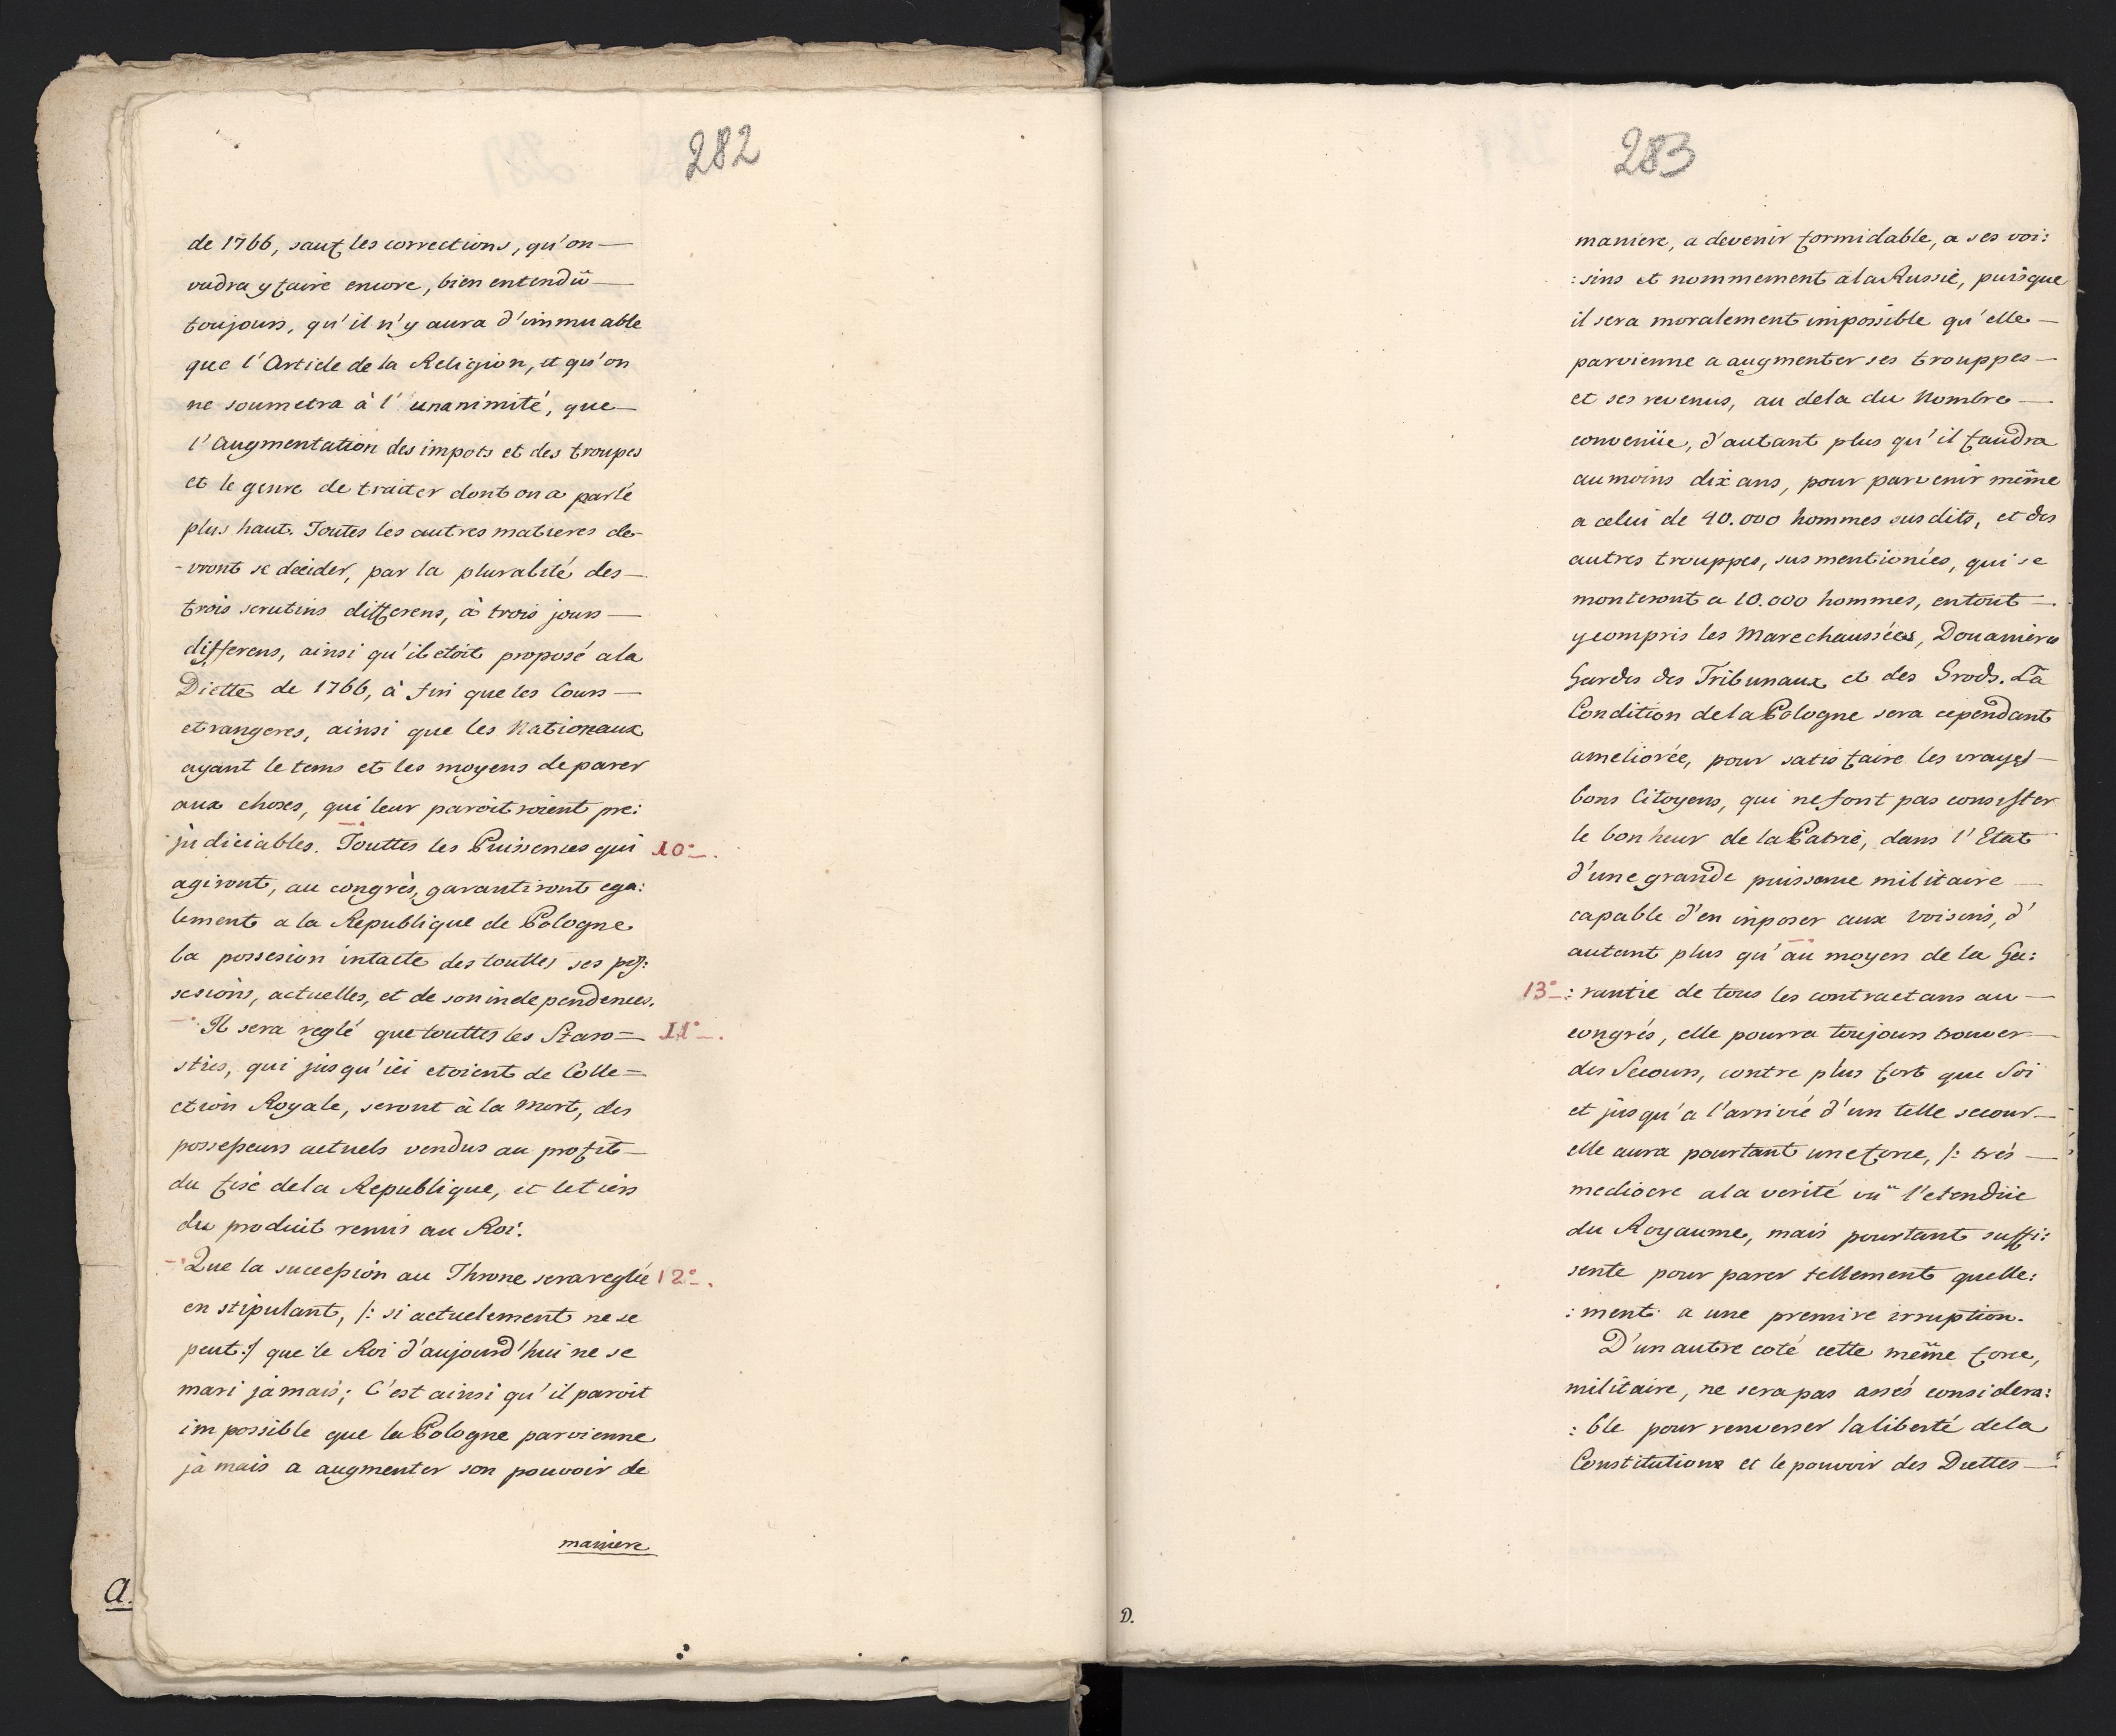 282
de 1766, sauf les corrections, qu'on —
vudra y faire encore, bien entendû —
toujours, qu'il n'y aura d'immuable
que l'Article de la Religion, et qu'on
ne soumetra à l'unanimité, que —
l'Augmentation des impots et des troupes
et le genre de traiter dont on a parlé
plus haut. Toutes les autres matieres de-
-vront se decider, par la pluralité des —
trois scrutins differens, à trois jours —
differens, ainsi qu'il etoit proposé a la
Diette de 1766, à fin que les Cours —
etrangeres, ainsi que les Nationeaux
ayant le tems et les moyens de parer
aux choses, qui leur paroitroient pre:
judiciables. Touttes les Puissences qui 10° —.
agiront, au congrès, garantiront ega:
lement a la Republique de Pologne
la possesion intacte des touttes ses pos:
sesions, actuelles, et de son independence.
Il sera reglé que touttes les Staro= 11° —.
sties, qui jusqu'ici etoient de Colle=
ction Royale, seront à la Mort, des
possesseurs actuels vendus au profit —
du fisc de la Republique, et le tiers
du produit remis au Roi.
Que la succession au Throne sera reglée 12° —.
en stipulant, /: si actuelement ne se
peut :/ que le Roi d'aujourd'hui ne se
mari jamais; C'est ainsi qu'il paroit
impossible que la Pologne parvienne
jamais a augmenter son pouvoir de
maniere
a.
283
maniere, a devenir formidable, a ses voi:
:sins et nommement a la Russie, puisque
il sera moralement impossible qu'elle —
parvienne a augmenter ses trouppes —
et ses revenus, au dela du Nombre —
convenüe, d'autant plus qu'il faudra
au moins dix ans, pour parvenir même
a celui de 40.000 hommes susdits, et des
autres trouppes, susmentionées, qui se
monteront a 10.000 hommes, en tout —
y compris les Marechaussées, Douaniers
Gardes des Tribunaux et des Grods. La
Condition de la Pologne sera cependant
ameliorée, pour satisfaire les vrayes —
bons Citoyens, qui ne font pas consister
le bonheur de la Patrie, dans l'Etat
d'une grande puissance militaire —
capable d'en inposer aux voisins, d'
autant plus qu'au moyen de la Ga:
13° — :rantie de tous les contractans au —
congrés, elle pourra toujours trouver —
des Secours, contre plus fort que Soi
et jusqu'a l'arrivé d'un telle secour —
elle aura pourtant une force, /: trés —
mediocre a la verité vû l'etendüe
du Royaume, mais pourtant suffi:
sente pour parer tellement quelle:
:ment a une premire irruption.
D'un autre coté cette même force,
militaire, ne sera pas assés considera:
:ble pour renverser la liberté de la
Constitutions et le pouvoir des Diettes —
D.